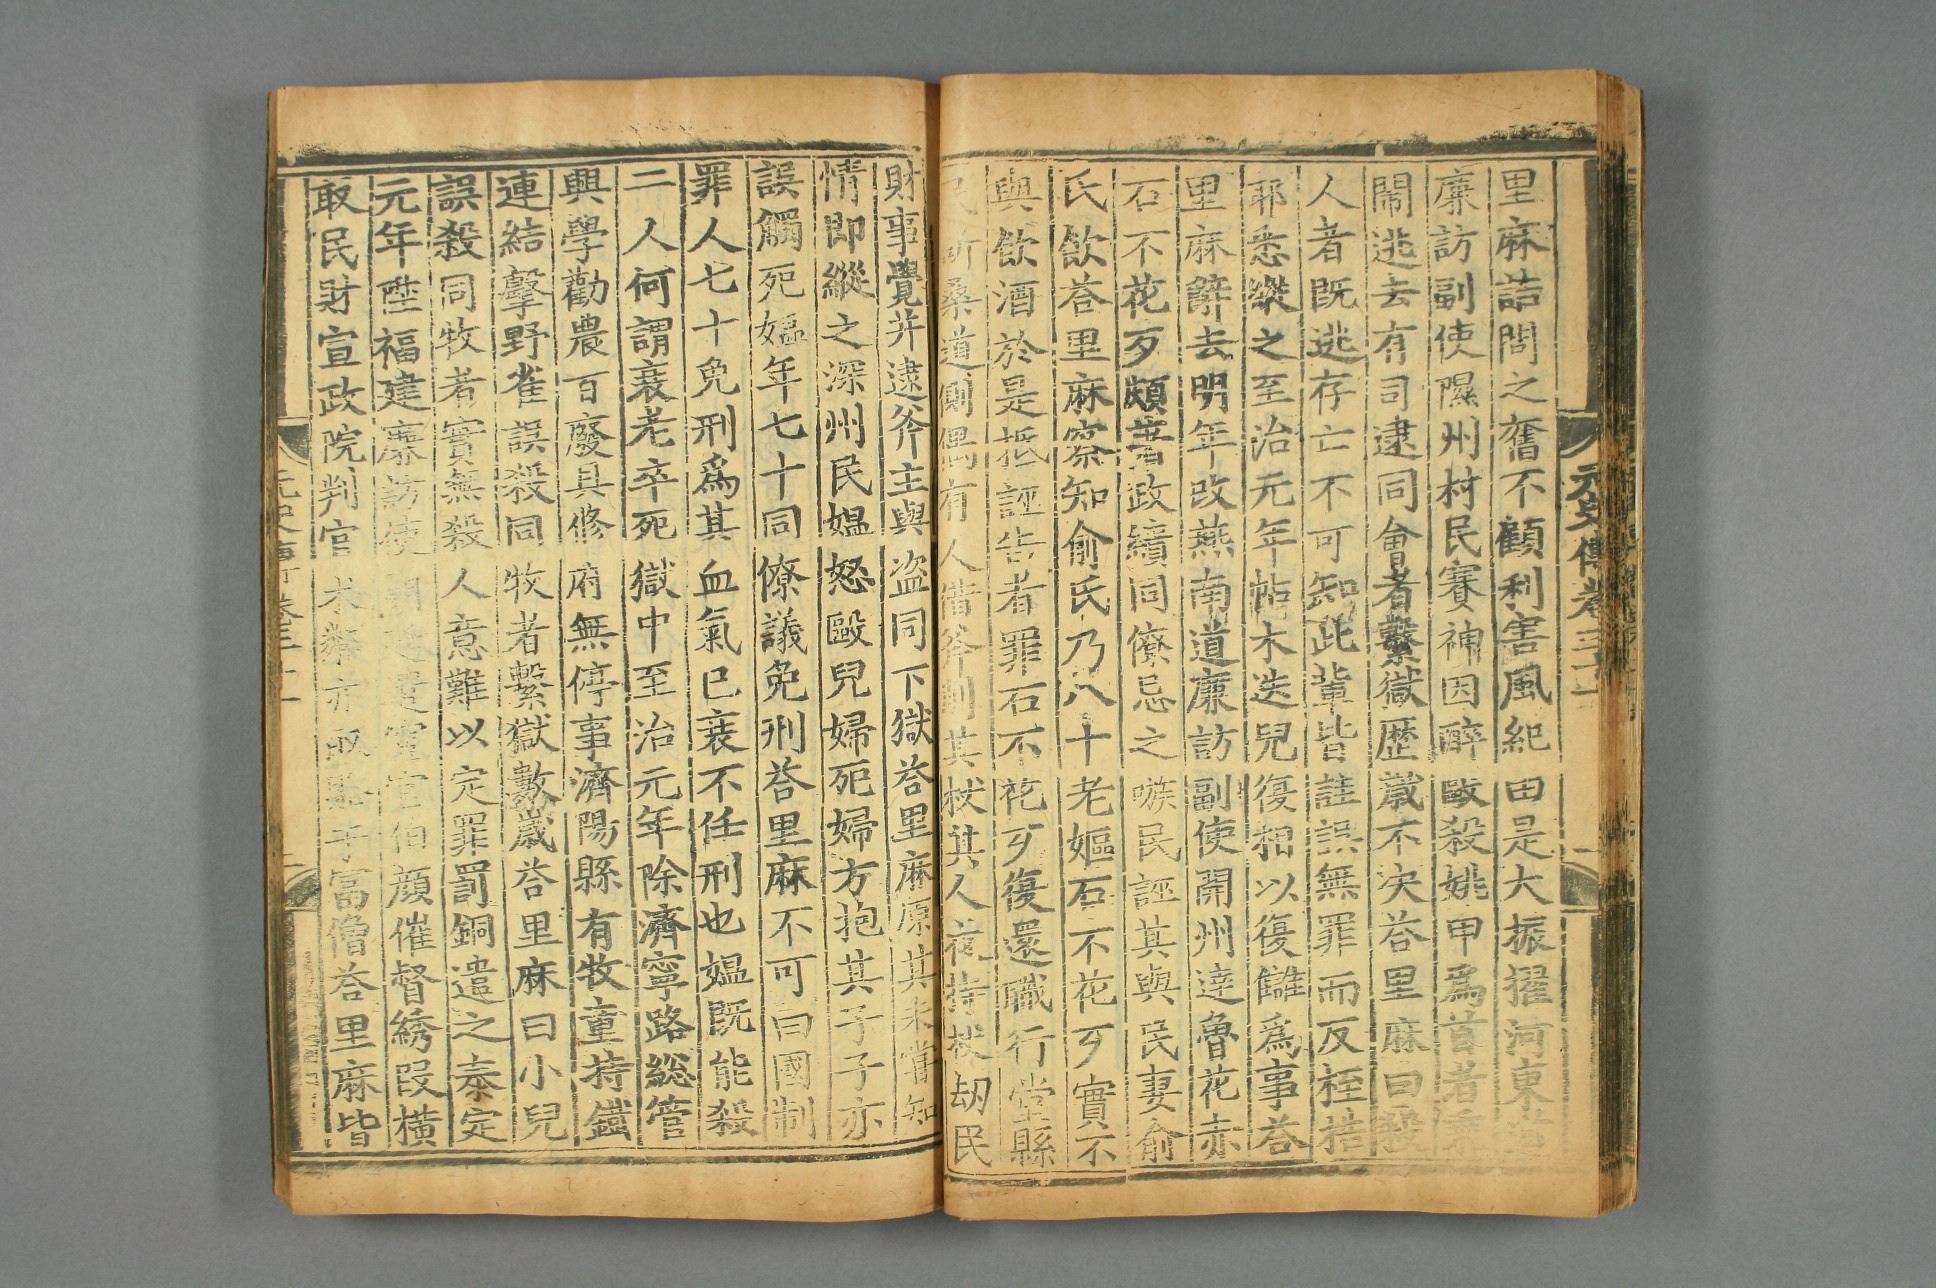 里麻詰問之奮不顧利害風紀由是大振擢河東道
廉訪副使隰州村民賽神因醉毆殺姚甲爲首者
鬧逃去有司逮同會者繫獄歷歲不決荅里麻曰殺
人者既逃存亡不可知此輩皆註誤無罪而反桎梏
耶悉縱之至治元年帖木迭兒復相以復讎爲事荅
里麻辭去明年改燕南道廉訪副使開州達魯花赤
石不花歹頗著政績同僚忌之嗾民誣其與民妻俞
氏飲荅里麻察知俞氏乃八十老嫗石不花歹實不
與飲酒於是抵誣告者罪石不花歹復還職行堂縣
民斫桑道側偶有人借斧削其杖其人夜持杖刼民
財事覺并逮斧主與盜同下獄荅里麻原其未嘗知
情即縱之深州民媼怒毆兒婦死婦方抱其子子亦
誤觸死嫗年七十同僚議免刑荅里麻不可曰國制
罪人七十免刑爲其血氣已衰不任刑也媼既能殺
二人何謂衰老卒死獄中至治元年除濟寧路総管
興學勸農百廢具修府無停事濟陽縣有牧童持鐵
連結擊野雀誤殺同牧者繫獄數歲荅里麻曰小兒
誤殺同牧者實無殺人意難以定罪罰銅遣之泰定
元年陞福建廉訪使朝廷遣宦官伯顔催督綉叚橫
取民財宣政院判官术鄰亦取賂于富僧荅里麻皆
元史傳卷三十一
元史傳卷三十一